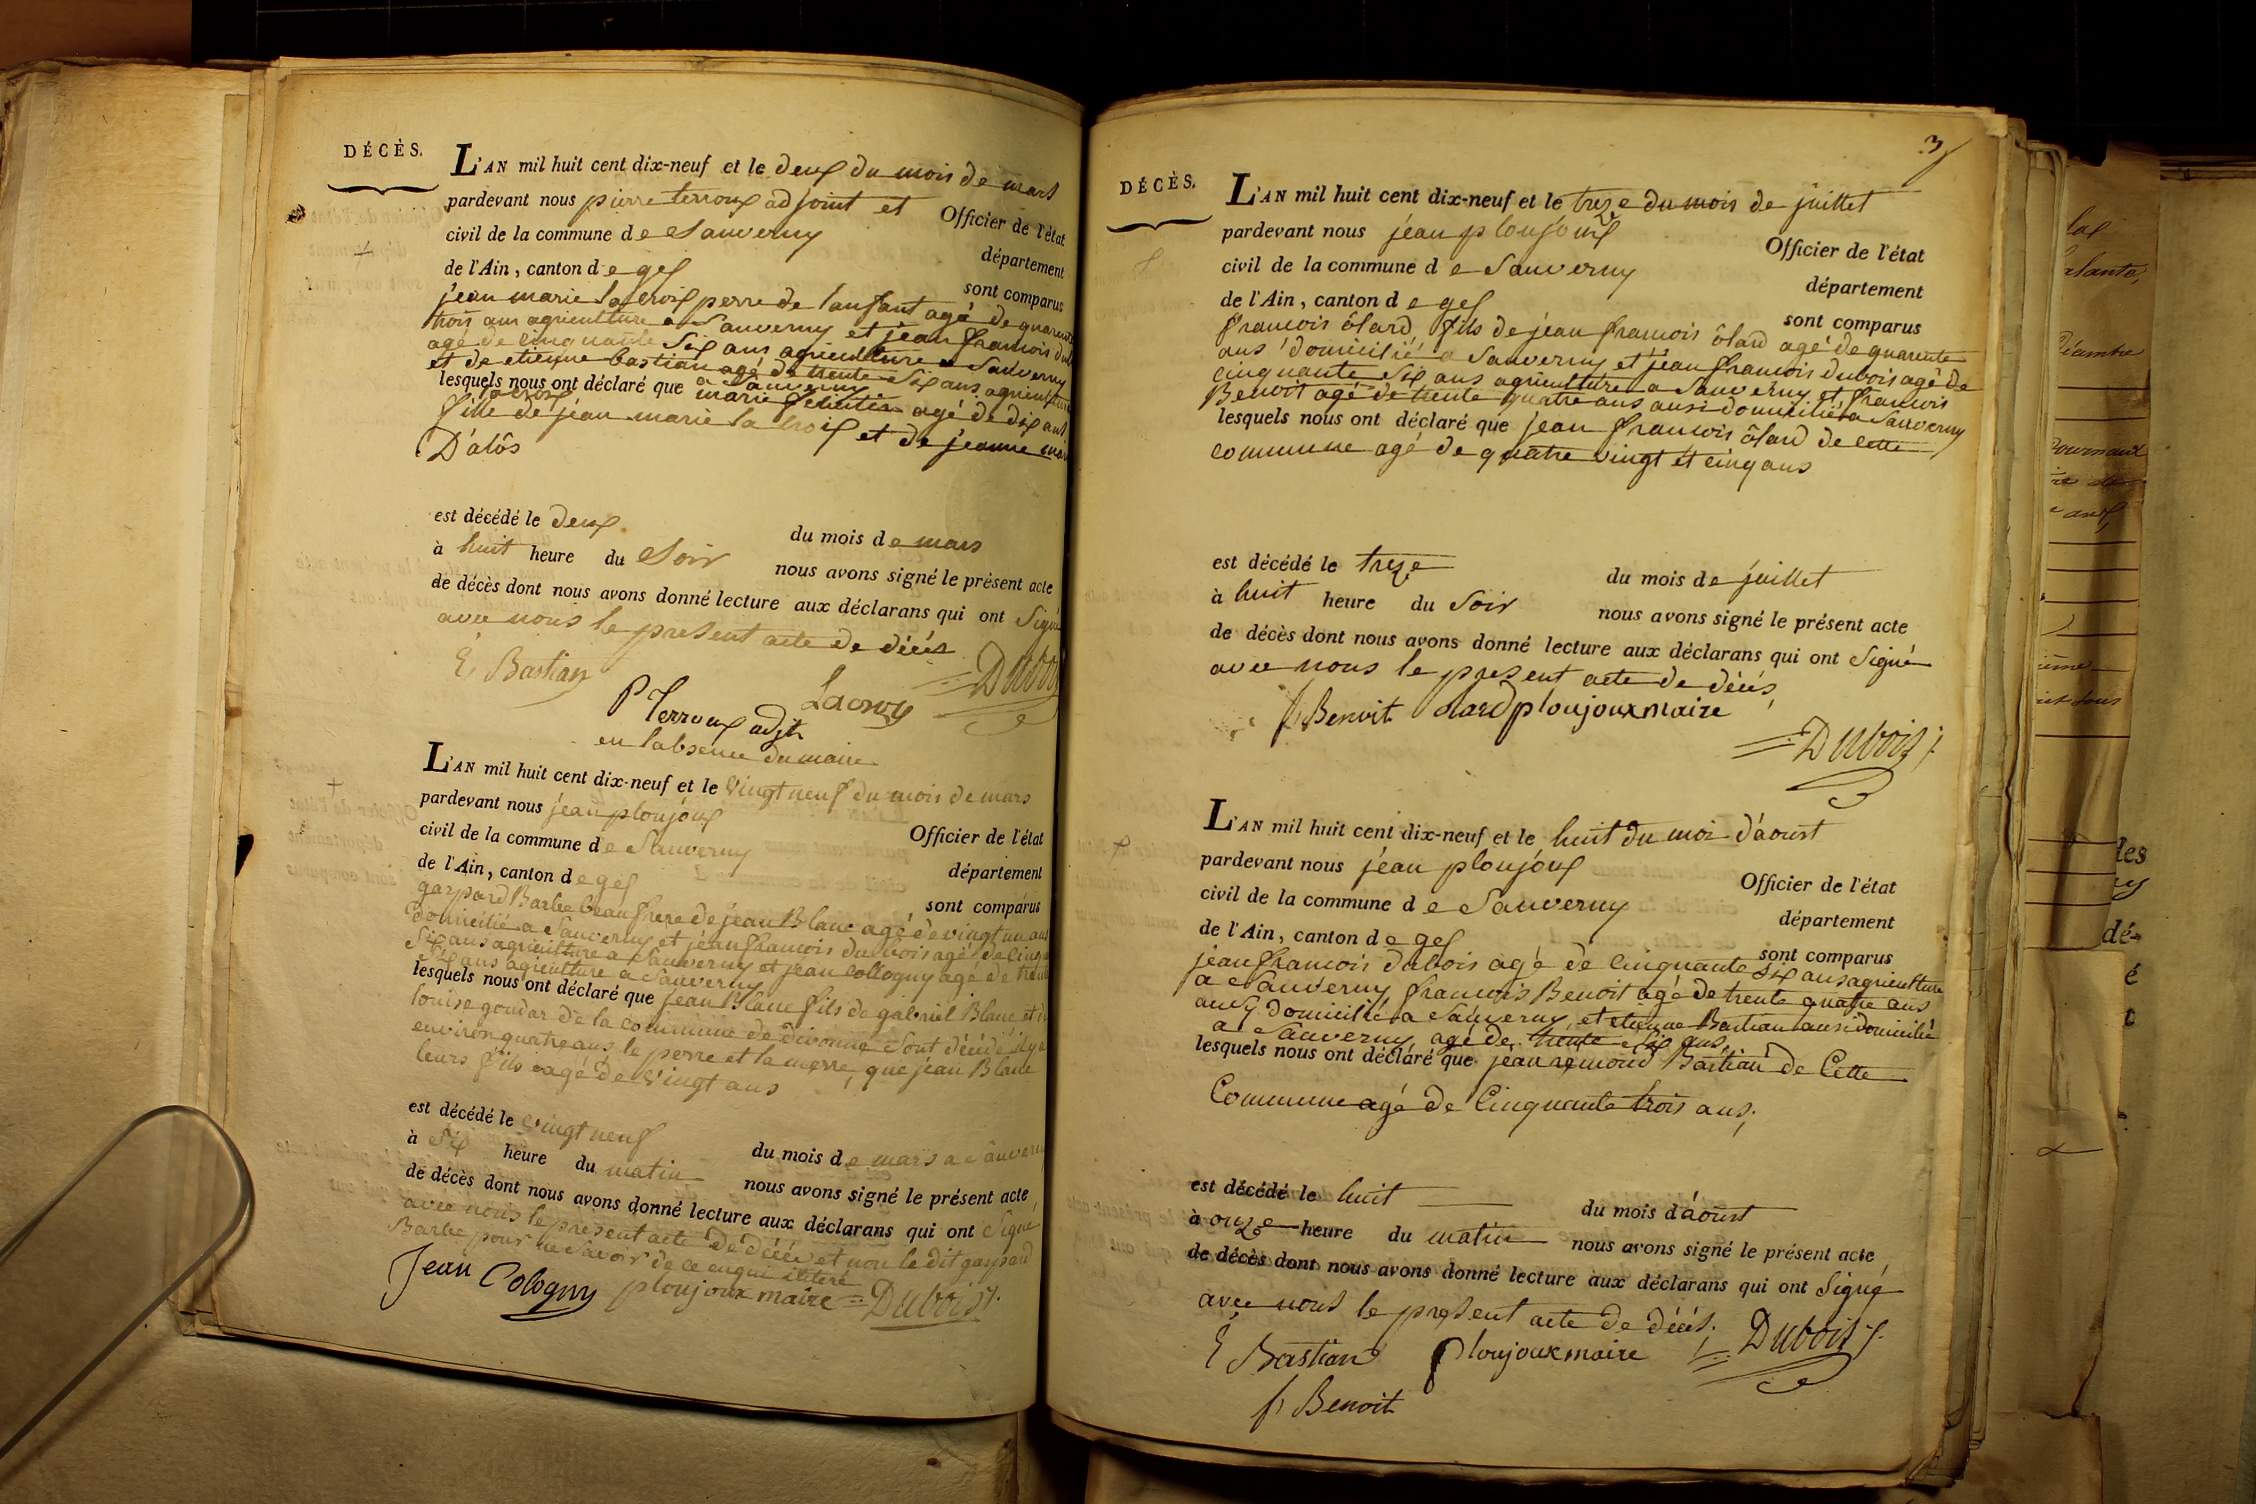 DÉCÈS.
L'AN mil huit cent dix-neuf et le deux du mois de mars
pardevant nous pierre terroux adjoint et Officier de l'état
civil de la commune de Sauverny département
de l'Ain, canton de gex sont comparus
jean marie lacroix perre de lanfant agé de quarente
trois ans agriculture a Sauverny et jean francois
agé de cinquante Six ans agriculture a Sauverny
et de etienne bastian agé de trente Six ans agriculture
a Sauverny
lesquels nous ont déclaré que marie felicité agé de dix ans
lacroix
fille de jean marie la croix et de jeanne
D'alôs
est décédé le deux du mois de mars
à huit heure du Soir nous avons signé le présent acte
de décès dont nous avons donné lecture aux déclarans qui ont Signé
avec nous le present acte de décés
E Bastian Lacroix Dubois
P Terroux adjt
en labsence du maire
L'AN mil huit cent dix-neuf et le vingt neuf du mois de mars
pardevant nous jean ploujoux Officier de l'état
civil de la commune de Sauverny département
de l'Ain, canton de gex sont comparus
gaspard Barbe beau frere de jean Blanc agé de vingt un ans
domicilié a Sauverny et jean francois dubois agé de cinq
Six ans agriculture a Sauverny et jean collogny agé de trente
Six ans agriculture a Sauverny
lesquels nous ont déclaré que jean Blanc fils de gabriel Blanc et
louise goudar de la commune de divonne Sont décédé il y a
environ quatre ans le perre et la merre, que jean Blanc
leurs fils agé de vingt ans
est décédé le vingt neuf du mois de mars a Sauverny
à Six heure du matin nous avons signé le présent acte
de décès dont nous avons donné lecture aux déclarans qui ont Signé
avec nous le present acte de décée et non le dit gaspard
Barbe pour ne Savoir de ce enqui
Jean Cologny ploujoux maire Dubois
3
DÉCÈS.
L'AN mil huit cent dix-neuf et le treze du mois de juillet
pardevant nous jean ploujoux Officier de l'état
civil de la commune de Sauverny département
de l'Ain, canton de gex sont comparus
francois ôlard fils de jean francois ôlard agé de quarente
ans domicilié a Sauverny et jean francois dubois agé de
cinquante Six ans agriculture a Sauverny et francois
Benoit agé de trente quatre ans ausi domicilié a Sauverny
lesquels nous ont déclaré que jean francois ôlard de cette
commune agé de quatre vingt et cinq ans
est décédé le treze du mois de juillet
à huit heure du Soir nous avons signé le présent acte
de décès dont nous avons donné lecture aux déclarans qui ont Signé
avec nous le present acte de décés
f Benoit olard ploujoux maire
Dubois
L'AN mil huit cent dix-neuf et le huit du moi d'aoust
pardevant nous jean ploujoux Officier de l'état
civil de la commune de Sauverny département
de l'Ain, canton de gex sont comparus
jean francois dubois agé de cinquante Six ans agriculture
a Sauverny francois Benoit agé de trente quatre ans
aucy domicilié a Sauverny et etienne Bastian ausi domicilié
a Sauverny agé de trente Six ans,
lesquels nous ont déclaré que jean remond Bastian de Cette
Commune agé de Cinquante trois ans;
est décédé le huit du mois d'aoust
à onze heure du matin nous avons signé le présent acte
de décès dont nous avons donné lecture aux déclarans qui ont Signé
avec nous le present acte de décés.
E Bastian ploujoux maire Dubois
f Benoit